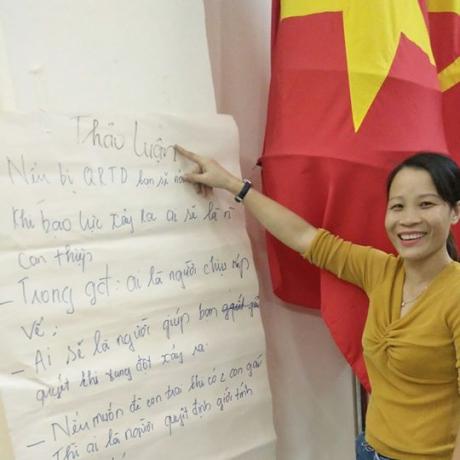 Thảo Luận
Nếu bị QRTD bạn sẽ
Khi bạo lực xảy ra ai sẽ là
can thiệp
- Trong gđ: ai là người chịu
vế:
- Ai sẽ là người giúp bạn giải
quyết khi xung đột xảy ra.
- Nếu muốn đẻ con trai khi có 2 con gái
Thì ai là người quyết định giới tính